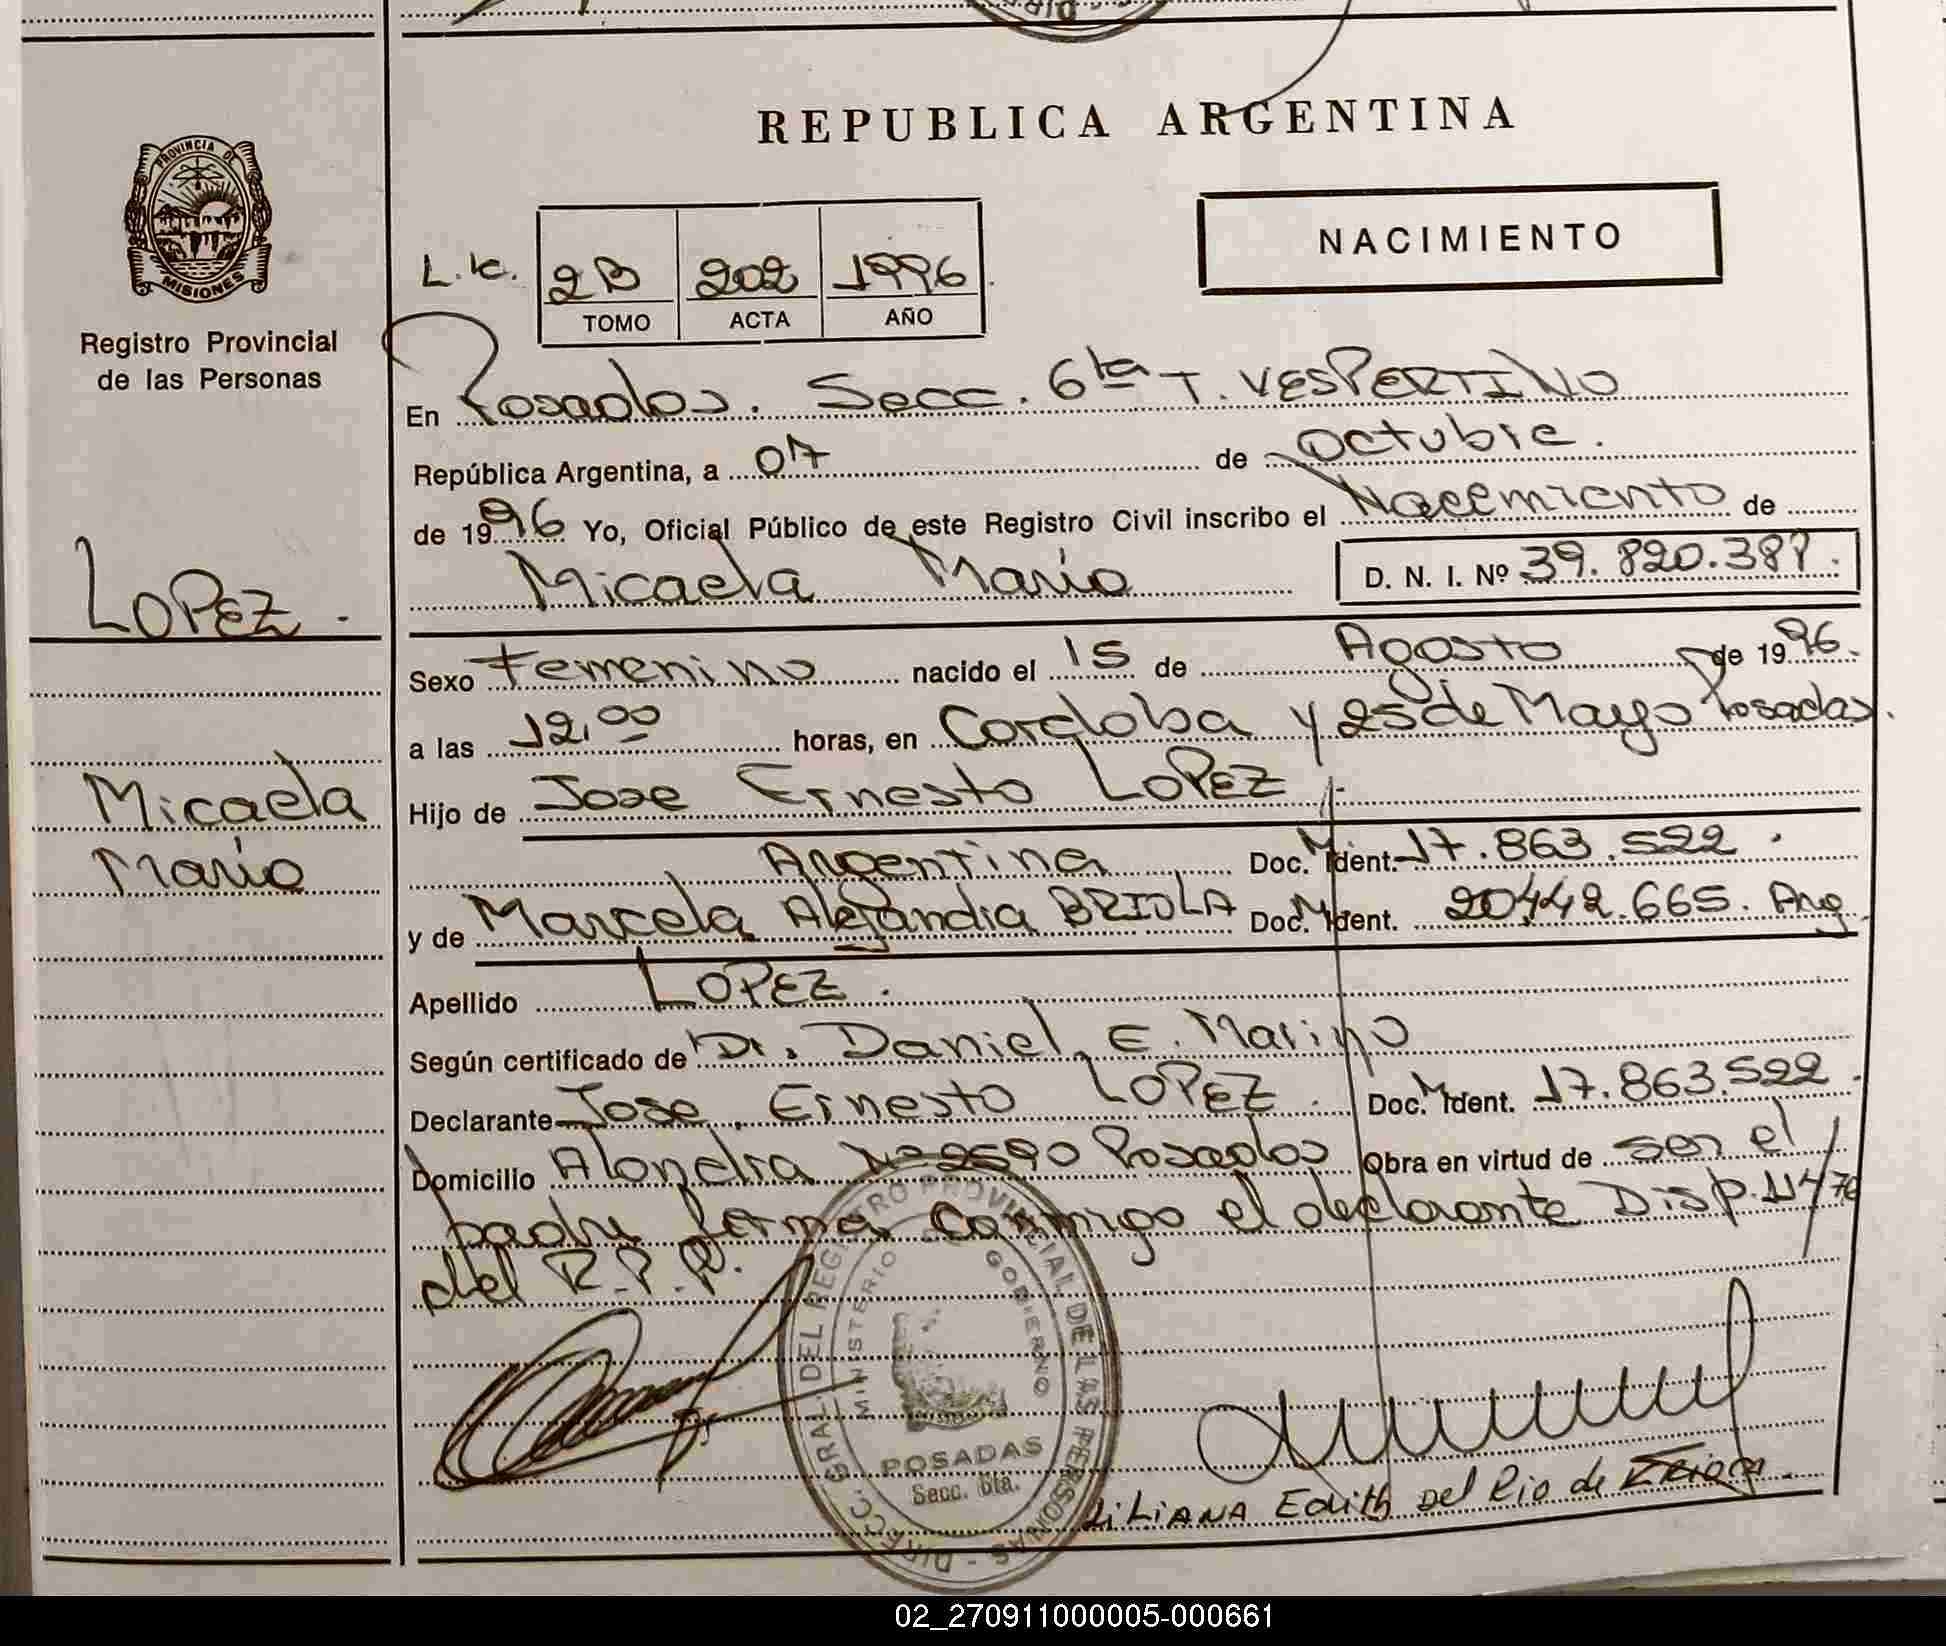 REPUBLICA ARGENTINA
NACIMIENTO
PROVINCIA DE
MISIONES
Registro Provincial
de las Personas
L.k. 2B 202 1996
TOMO ACTA AÑO
En Posadas. Secc. 6ta T. VESPERTINO
República Argentina, a 07 de Octubre.
de 1996 Yo, Oficial Público de este Registro Civil inscribo el Nacimiento de
Micaela María D. N. I. Nº 39.820.387.
LOPEZ.
Sexo Femenino nacido el 15 de Agosto de 1996.
a las 12,00 horas, en Cordoba y 25 de Mayo Posadas.
Micaela
María
Hijo de Jose Ernesto LOPEZ
Argentina Doc. Ident. M 17.863.522
y de Marcela Alejandra BRIOLA Doc. Ident. 20.442.665. Arg
Apellido LOPEZ.
Según certificado de Dr. Daniel E. Marino
Declarante Jose Ernesto LOPEZ. Doc. Ident. 17.863.522.
Domicilio Alondra Nº 2590 Posadas Obra en virtud de ser el
padre firma conmigo el declarante Disp. 11/76
del R.P.P.
DIRECC. GRAL. DEL REGISTRO PROVINCIAL DE LAS PERSONAS
MINISTERIO GOBIERNO
POSADAS
Secc. 6ta.
LILIANA Edith del Rio de
02_270911000005-000661